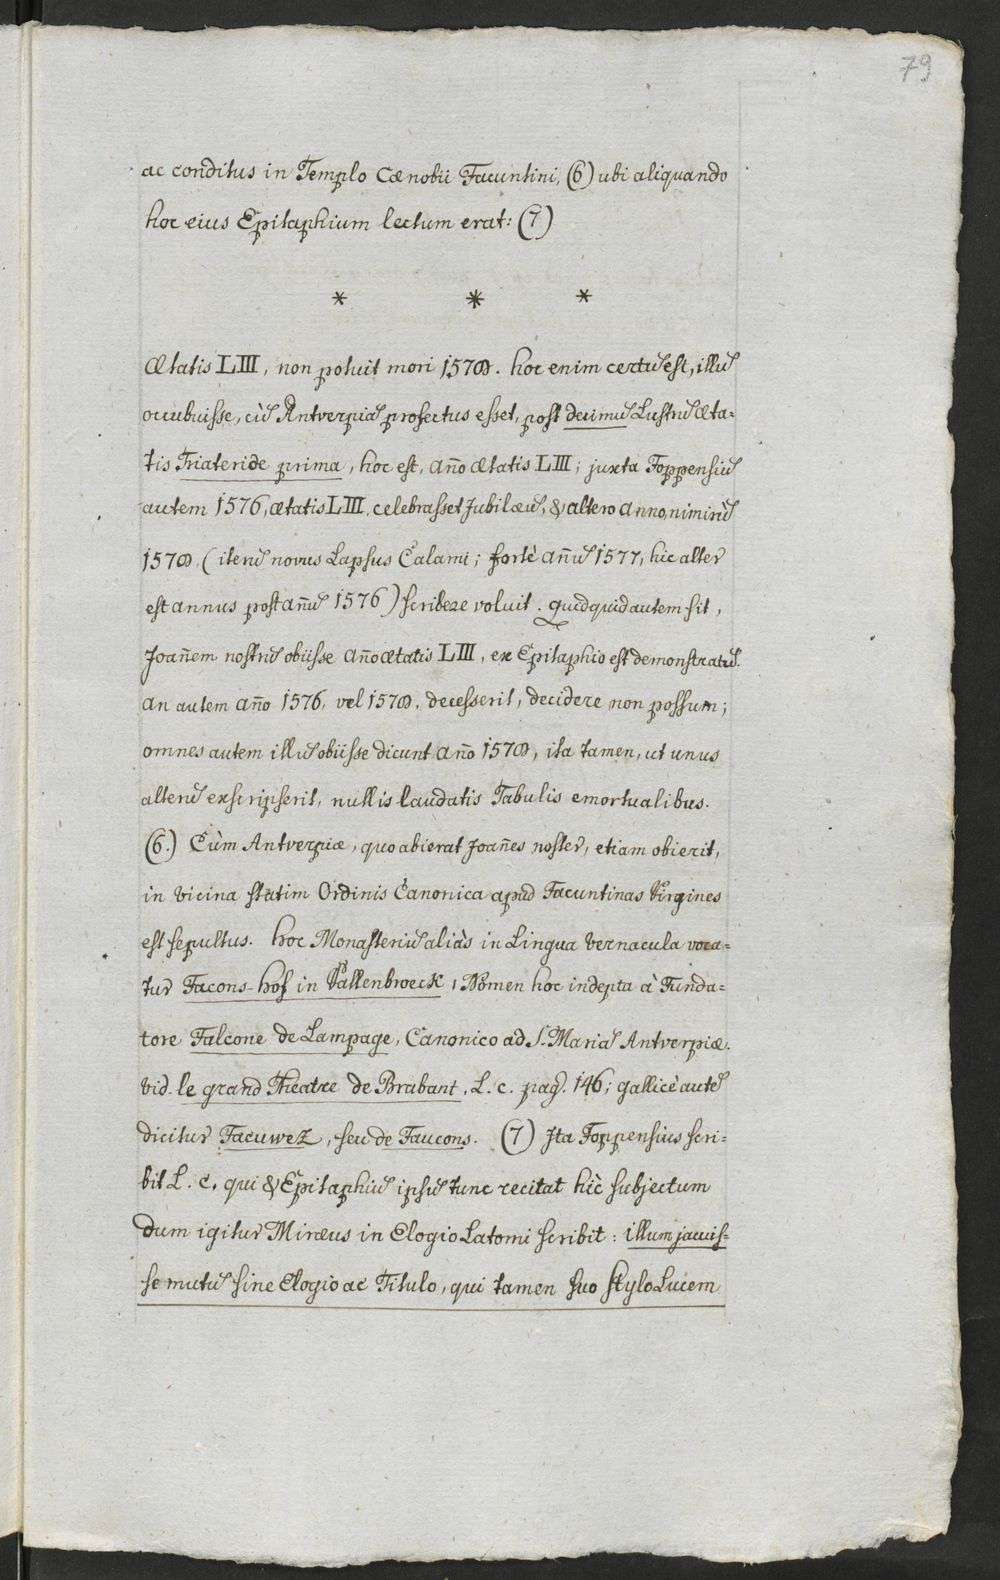 79
ac conditus in Templo Cœnobii Facuntini, (6) ubi aliquando
hoc eius Epitaphium lectum erat: (7)
* * *
Ætatis LIII, non potuit mori 1578. hoc enim certũ est, illũ
occubuisse, cũ Antverpiã profectus esset, post decimũ Lustrũ æta=
tis Triateride prima, hoc est, año ætatis LIII; juxta Foppensiũ
autem 1576, ætatis LIII, celebrasset Jubilæũ, & altero anno, nimirũ
1578, (iterũ novus Lapsus Calami; fortè añũ 1577, hic alter
est annus post añũ 1576) scribere voluit. quidquid autem sit,
Joañem nostrũ obiisse año ætatis LIII, ex Epitaphio est demonstratũ.
an autem año 1576, vel 1578, decesserit, decidere non possum;
omnes autem illũ obiisse dicunt año 1578, ita tamen, ut unus
alterũ exscripserit, nullis laudatis Tabulis emortualibus.
(6.) Cùm Antverpiæ, quo abierat Joañes noster, etiam obierit,
in vicina statim Ordinis Canonica apud Facuntinas Virgines
est sepultus. hoc Monasteriũ aliàs in Lingua vernacula voca=
tur Facons-hof in Vallenbroeck, Nomen hoc indepta à Funda=
tore Falcone de Lampage, Canonico ad S. Mariã Antverpiæ.
vid. le grand Theatre de Brabant, L. c. pag. 146; gallicè autẽ
dicitur Facuwez, seu de Faucons. (7) Ita Foppensius scri=
bit L. c. qui & Epitaphiũ ipsũ tunc recitat hîc subjectum
dum igitur Miræus in Elogio Latomi scribit: illum jacuis=
se mutũ sine Elogio ac Titulo, qui tamen suo stylo Lucem